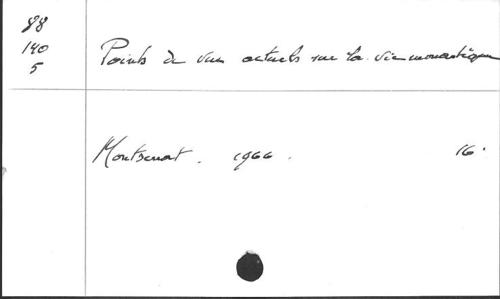 88
140
5
Points de vue actuels sur la vie monastique
Montserrat . 1966 .
16°